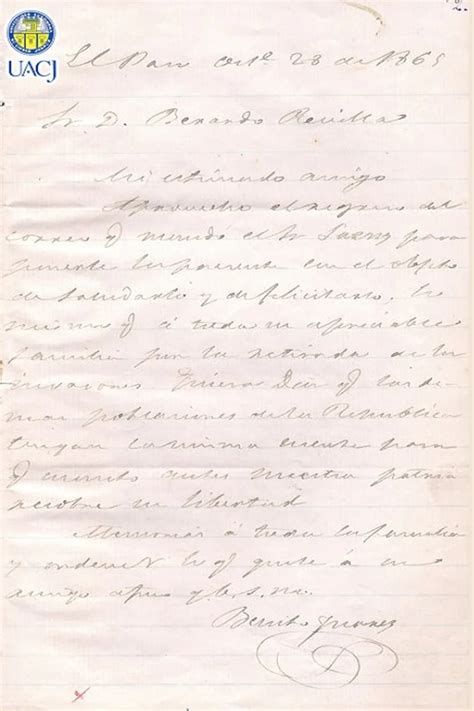 UACJ
El Paso Oct.e 28 de 1865
Sr. D. Berardo Revilla
Mi estimado amigo
Aprovecho el regreso del
correo q mandó el Sr para
ponerle la presente con el objeto
de saludarlo y de felicitarlo, lo
mismo q á toda su apreciable
familia por la retirada de los
invasores Quiera Dios q las de
mas poblaciones de la Republica
tengan la misma suerte para
q cuanto antes nuestra patria
recobre su libertad
Memorias á toda la familia
y ordene lo q guste á su
amigo q. b. s. m.
Benito Juarez